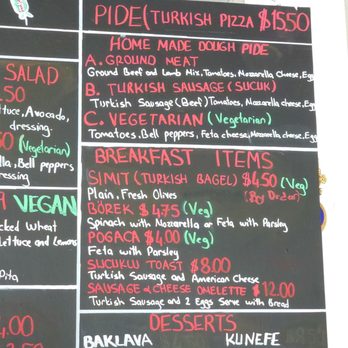 PIDE (TURKISH PIZZA $15.50
HOME MADE DOUGH PIDE
A. GROUND MEAT
Ground Beef and Lamb Mix, Tomatoes, Mozzarella Cheese, Egg
B. TURKISH SAUSAGE (SUCUK)
Turkish Sausage (Beef) Tomatoes, Mozzarella cheese, Egg
C. VEGETARIAN (Vegetarian)
Tomatoes, Bell peppers, Feta cheese, Mozzarella cheese, Egg
BREAKFAST ITEMS
SIMIT (TURKISH BAGEL) $4.50 (Veg)
Plain, Fresh Olives
BÖREK $4.75 (Veg)
Spinach with Mozzarella or Feta with Parsley
POGACA $4.00 (Veg)
Feta with Parsley
SUCUKLU TOAST $8.00
Turkish Sausage and American Cheese
SAUSAGE & CHEESE OMELETTE $12.00
Turkish Sausage and 2 Eggs Serve with Bread
DESSERTS
BAKLAVA KUNEFE
SALAD
.50
ttuce, Avocado,
dressing.
50 (Vegetarian)
lla, Bell peppers
dressing
VEGAN
cked Wheat
Lettuce and Lemons
Pita
4.00